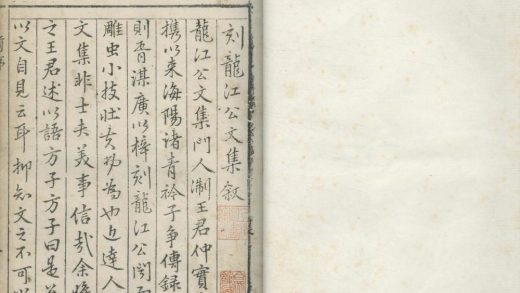 刻龍江公文集叙
龍江公文集門人制王君仲實
携以来海陽諸青衿子争傳録
則胥謀廣以梓刻龍江公聞而
雕虫小技壯夫為也近達人
文集非士夫美事信哉余
之王君述以語方子方子曰是
以文自見云耳抑知文之不可